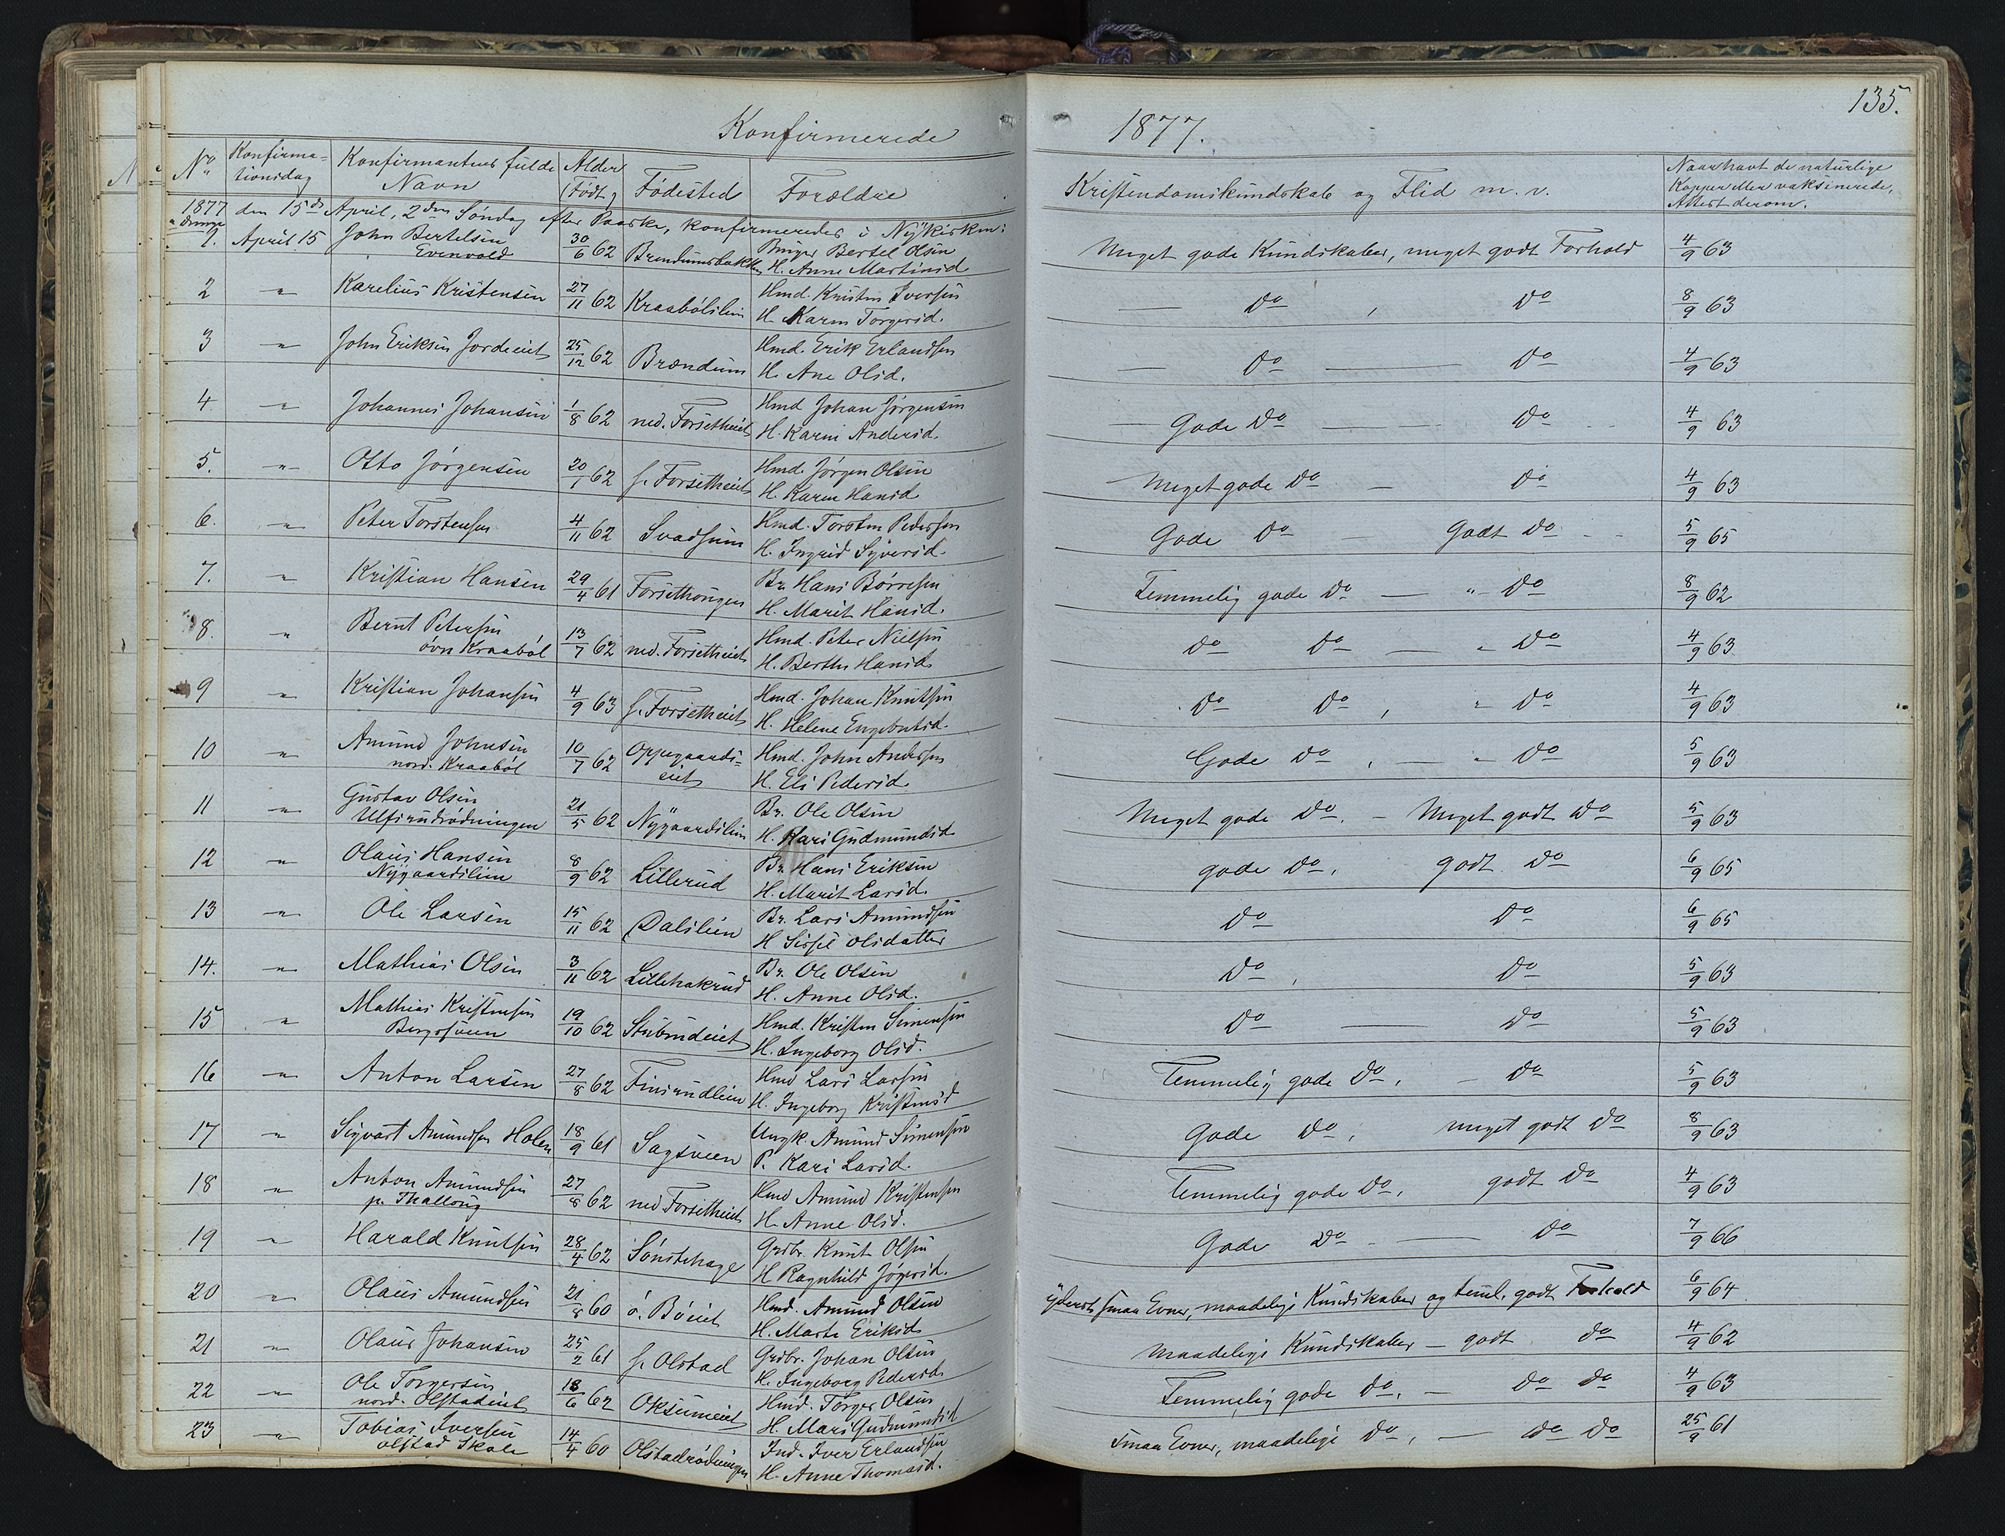 135.
Konfirmerede
1877.
No
Konfirma-
tionsdag
Konfirmantens fulde
Navn
Alder
Født
Fødested
Forældre
Kristendomskundskab og Flid m. v.
Naar havt de naturlige
Kopper eller vaksinerede,
Attest derom.
1877 den 15de April, 2den Søndag efter Paaske, konfirmeredes i Nykirken:
Drenge
1. April 15 John Bertelsen 30/6 62 Brændumsbakken Bruger Bertel Olsen Meget gode Kundskaber, meget godt Forhold 4/9 63
Evenvold H. Anne Martinsd
2 " Karelius Kristensen 27/11 62 Kraabølslien Hmd. Kristen Iversen — do , do 8/9 63
H. Karen Torgersd.
3 " John Eriksen Jordeiet 25/12 62 Brændum Hmd. Erik Erlandsen — do — do 4/9 63
H. Ane Olsd.
4. " Johannes Johansen 1/8 62 ned. Forsetheiet Hmd Johan Jørgensen Gode do — do 4/9 63
H. Karen Andersd.
5. " Otto Jørgensen 20/1 62 s. Forsetheiet Hmd. Jørgen Olsen Meget gode do — do 4/9 63
H. Karen Hansd
6. " Peter Torstensen 4/11 62 Svadsum Hmd. Torsten Pedersen Gode do — Godt do 5/9 65
H. Ingrid Syversd.
7. " Kristian Hansen 29/4 61 Forsethøugen Br. Hans Børresen Temmelig gode do — " do 8/9 62
H. Marit Hansd.
8. " Bernt Petersen 13/7 62 ned. Forsetheiet Hmd. Peter Nielsen do do — " do 4/9 63
øvre Kraabøl H. Berthe Hansd.
9 " Kristian Johansen 4/9 63 s. Forsetheiet Hmd. Johan Knutsen do do , " do 4/9 63
H. Helene Engebretsd.
10 " Amund Johnsen 10/7 62 Oppegaards- Hmd. John Andersen Gode do , — " do 5/9 63
nord. Kraabøl eiet H. Eli Pedersd.
11 " Gustav Olsen 21/5 62 Nygaardslien Br. Ole Olsen Meget gode do. — Meget godt do 5/9 63
Ulfsrudrødningen H. Kari Gudmundsd
12 " Olaus Hansen 8/9 62 Lillerud Br. Hans Eriksen gode do, godt do 6/9 65
Nygaardslien H. Marit Larsd.
13 " Ole Larsen 15/11 62 Dalslien Br. Lars Amundsen do do 6/9 65
H Sissel Olsdatter
14. " Mathias Olsen 3/11 62 Lillehakrud Br. Ole Olsen do , do 5/9 63
H. Anne Olsd.
15 " Mathias Kristensen 19/10 62 Stubrudeiet Hmd. Kristen Simensen do — do 5/9 63
Bergssveen H. Ingeborg Olsd.
16 " Anton Larsen 27/8 62 Finsrudlien Hmd Lars Larsen Temmelig gode do, — do 5/9 63
H. Ingeborg Kristensd
17 " Sigvart Amundsen Holen 18/9 61 Sagsveen Ungk. Amund Simensen Gode do, meget godt do 8/9 63
P. Kari Larsd.
18 " Anton Amundsen 27/8 62 ned Forsetheiet Hmd Amund Kristensen Temmelig gode do, godt do 4/9 63
p. Thallaug H. Anne Olsd.
19 " Harald Knutsen 28/4 62 Sønstehage Grdbr. Knut Olsen Gode do — do 7/9 66
H Ragnhild Jøgersd.
20 " Olaus Amundsen 21/8 60 ø. Bøeiet Hmd. Amund Olsen yderst smaa Evner, maadelige Kundskaber og teml. godt Forhold 6/9 64
H. Marte Eriksd.
21 " Olaus Johansen 25/2 61 s. Olstad Grdbr. Johan Olsen maadelige Kundskaber — godt do 4/9 62
H. Ingeborg Pedersd.
22 " Ole Torgersen 18/6 62 Oksumeiet Hmd. Torger Olsen Temmelig gode do, — do do 4/9 63
nord. Olstadeiet H. Mari Gudmundsd
23 " Tobias Iversen 14/4 60 Olstadrødningen Ind. Iver Erlandsen Smaa Evner, maadelige do, — do do 25/9 61
Olstad Skole H. Anne Thomasd.